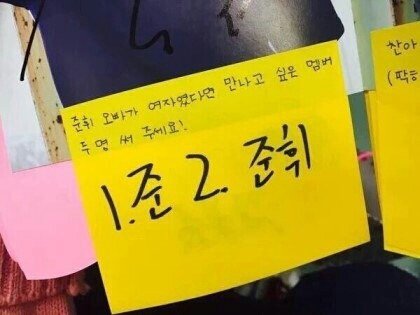 준휘 오빠가 여자였다면 만나고 싶은 멤버
두 명 써 주세요!
1. 준 2. 준휘
찬아
(팍